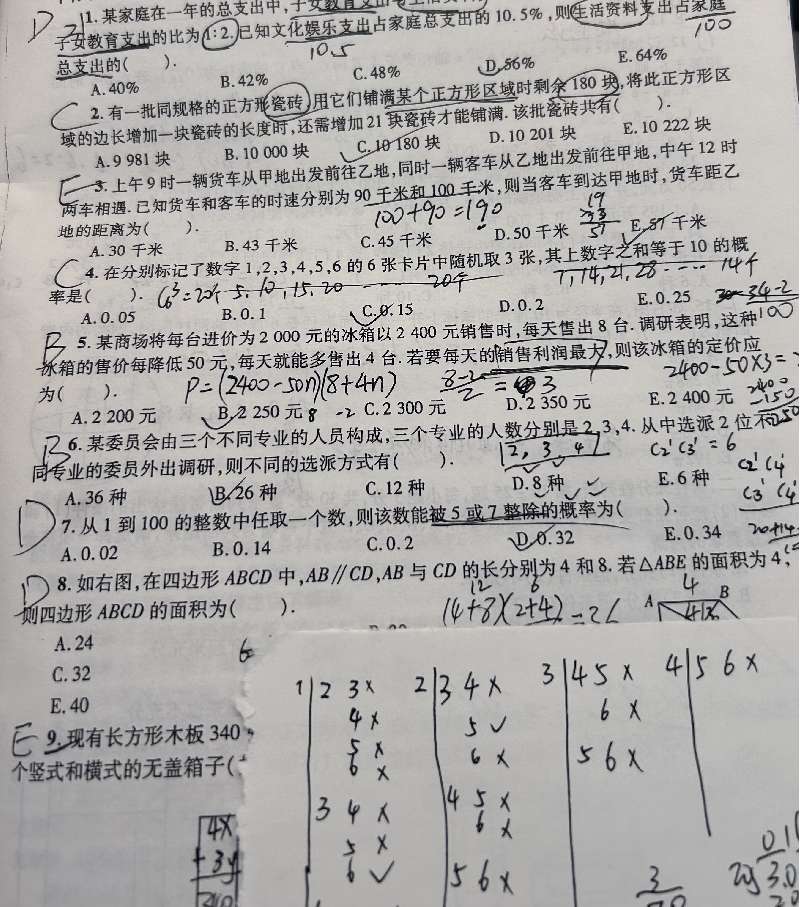 D 1. 某家庭在一年的总支出中,子女教育支出
子女教育支出的比为1:2.已知文化娱乐支出占家庭总支出的10.5%,则生活资料支出占家庭
10.5 100
总支出的( ).
A. 40% B. 42% C. 48% D. 56% E. 64%
C 2. 有一批同规格的正方形瓷砖,用它们铺满某个正方形区域时剩余180块,将此正方形区
域的边长增加一块瓷砖的长度时,还需增加21块瓷砖才能铺满.该批瓷砖共有( ).
A. 9 981 块 B. 10 000 块 C. 10 180 块 D. 10 201 块 E. 10 222 块
E 3. 上午9时一辆货车从甲地出发前往乙地,同时一辆客车从乙地出发前往甲地,中午12时
两车相遇.已知货车和客车的时速分别为90千米和100千米,则当客车到达甲地时,货车距乙
地的距离为( ). 100+90=190
A. 30 千米 B. 43 千米 C. 45 千米 D. 50 千米 E. 57 千米
C 4. 在分别标记了数字1,2,3,4,5,6的6张卡片中随机取3张,其上数字之和等于10的概
率是( ).
A. 0.05 B. 0.1 C. 0.15 D. 0.2 E. 0.25
B 5. 某商场将每台进价为2 000元的冰箱以2 400元销售时,每天售出8台.调研表明,这种
冰箱的售价每降低50元,每天就能多售出4台.若要每天的销售利润最大,则该冰箱的定价应
为( ). P=(2400-50n)(8+4n) 2400-50×3=
A. 2 200 元 B. 2 250 元 C. 2 300 元 D. 2 350 元 E. 2 400 元
B 6. 某委员会由三个不同专业的人员构成,三个专业的人数分别是2,3,4.从中选派2位不
同专业的委员外出调研,则不同的选派方式有( ). 2, 3, 4
A. 36 种 B. 26 种 C. 12 种 D. 8 种 E. 6 种
D 7. 从1到100的整数中任取一个数,则该数能被5或7整除的概率为( ).
A. 0.02 B. 0.14 C. 0.2 D. 0.32 E. 0.34
D 8. 如右图,在四边形ABCD中,AB∥CD,AB与CD的长分别为4和8.若△ABE的面积为4,
则四边形ABCD的面积为( ).
12 6
(4+8)(2+4)
4
A B
A. 24
C. 32
E. 40
E 9. 现有长方形木板340
个竖式和横式的无盖箱子(
4x
+3y
1 | 2 3× 2 | 3 4 × 3 | 4 5 × 4 | 5 6 ×
4 × 5 ✓ 6 ×
5 × 6 × 5 6 ×
6 ×
3 4 × 4 5 ×
5 × 6 ×
6 ✓ 5 6 ×